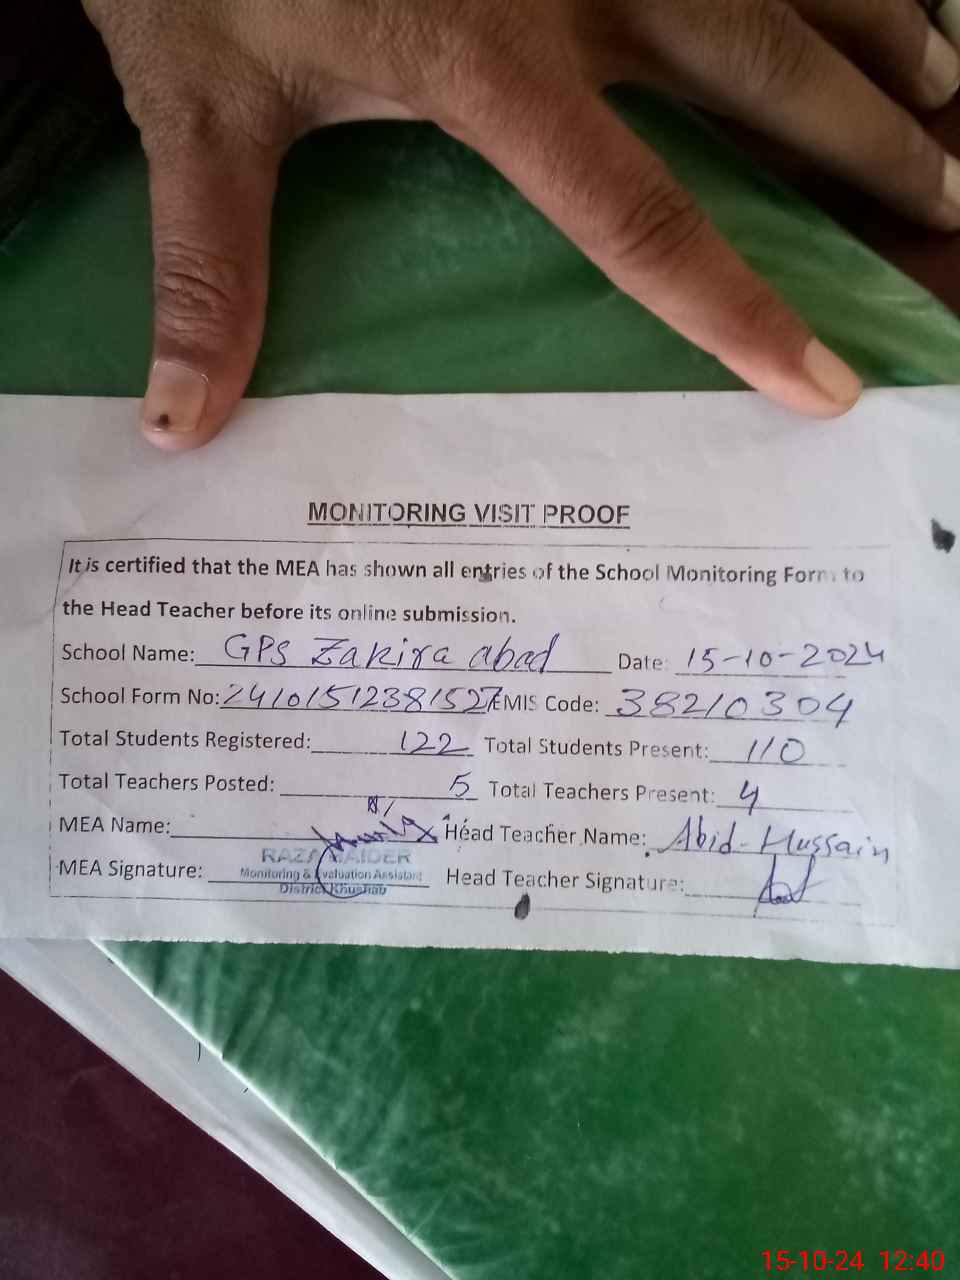 MONITORING VISIT PROOF
It is certified that the MEA has shown all entries of the School Monitoring Form to
the Head Teacher before its online submission.
School Name: GPS Zakira abad Date: 15-10-2024
School Form No: 24101512381527 EMIS Code: 38210304
Total Students Registered: 122 Total Students Present: 110
Total Teachers Posted: 5 Total Teachers Present: 4
MEA Name: Head Teacher Name: Abid-Hussain
RAZA HAIDER
MEA Signature: Monitoring & Evaluation Assistant Head Teacher Signature:
District Khushab
15-10-24 12:40